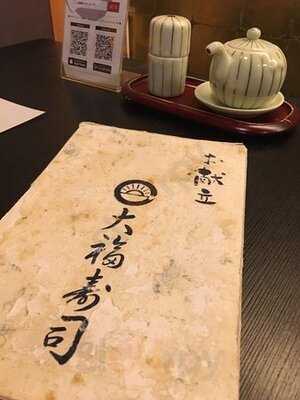 お献立
大福寿司